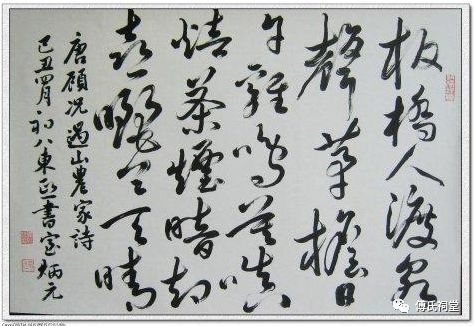 板橋人渡泉
聲茅檐日
午雞鳴莫嗔
焙茶煙暗却
喜曬穀天晴
唐顾况過山農家詩
己丑四月初八東正書室炳元
傅氏祠堂